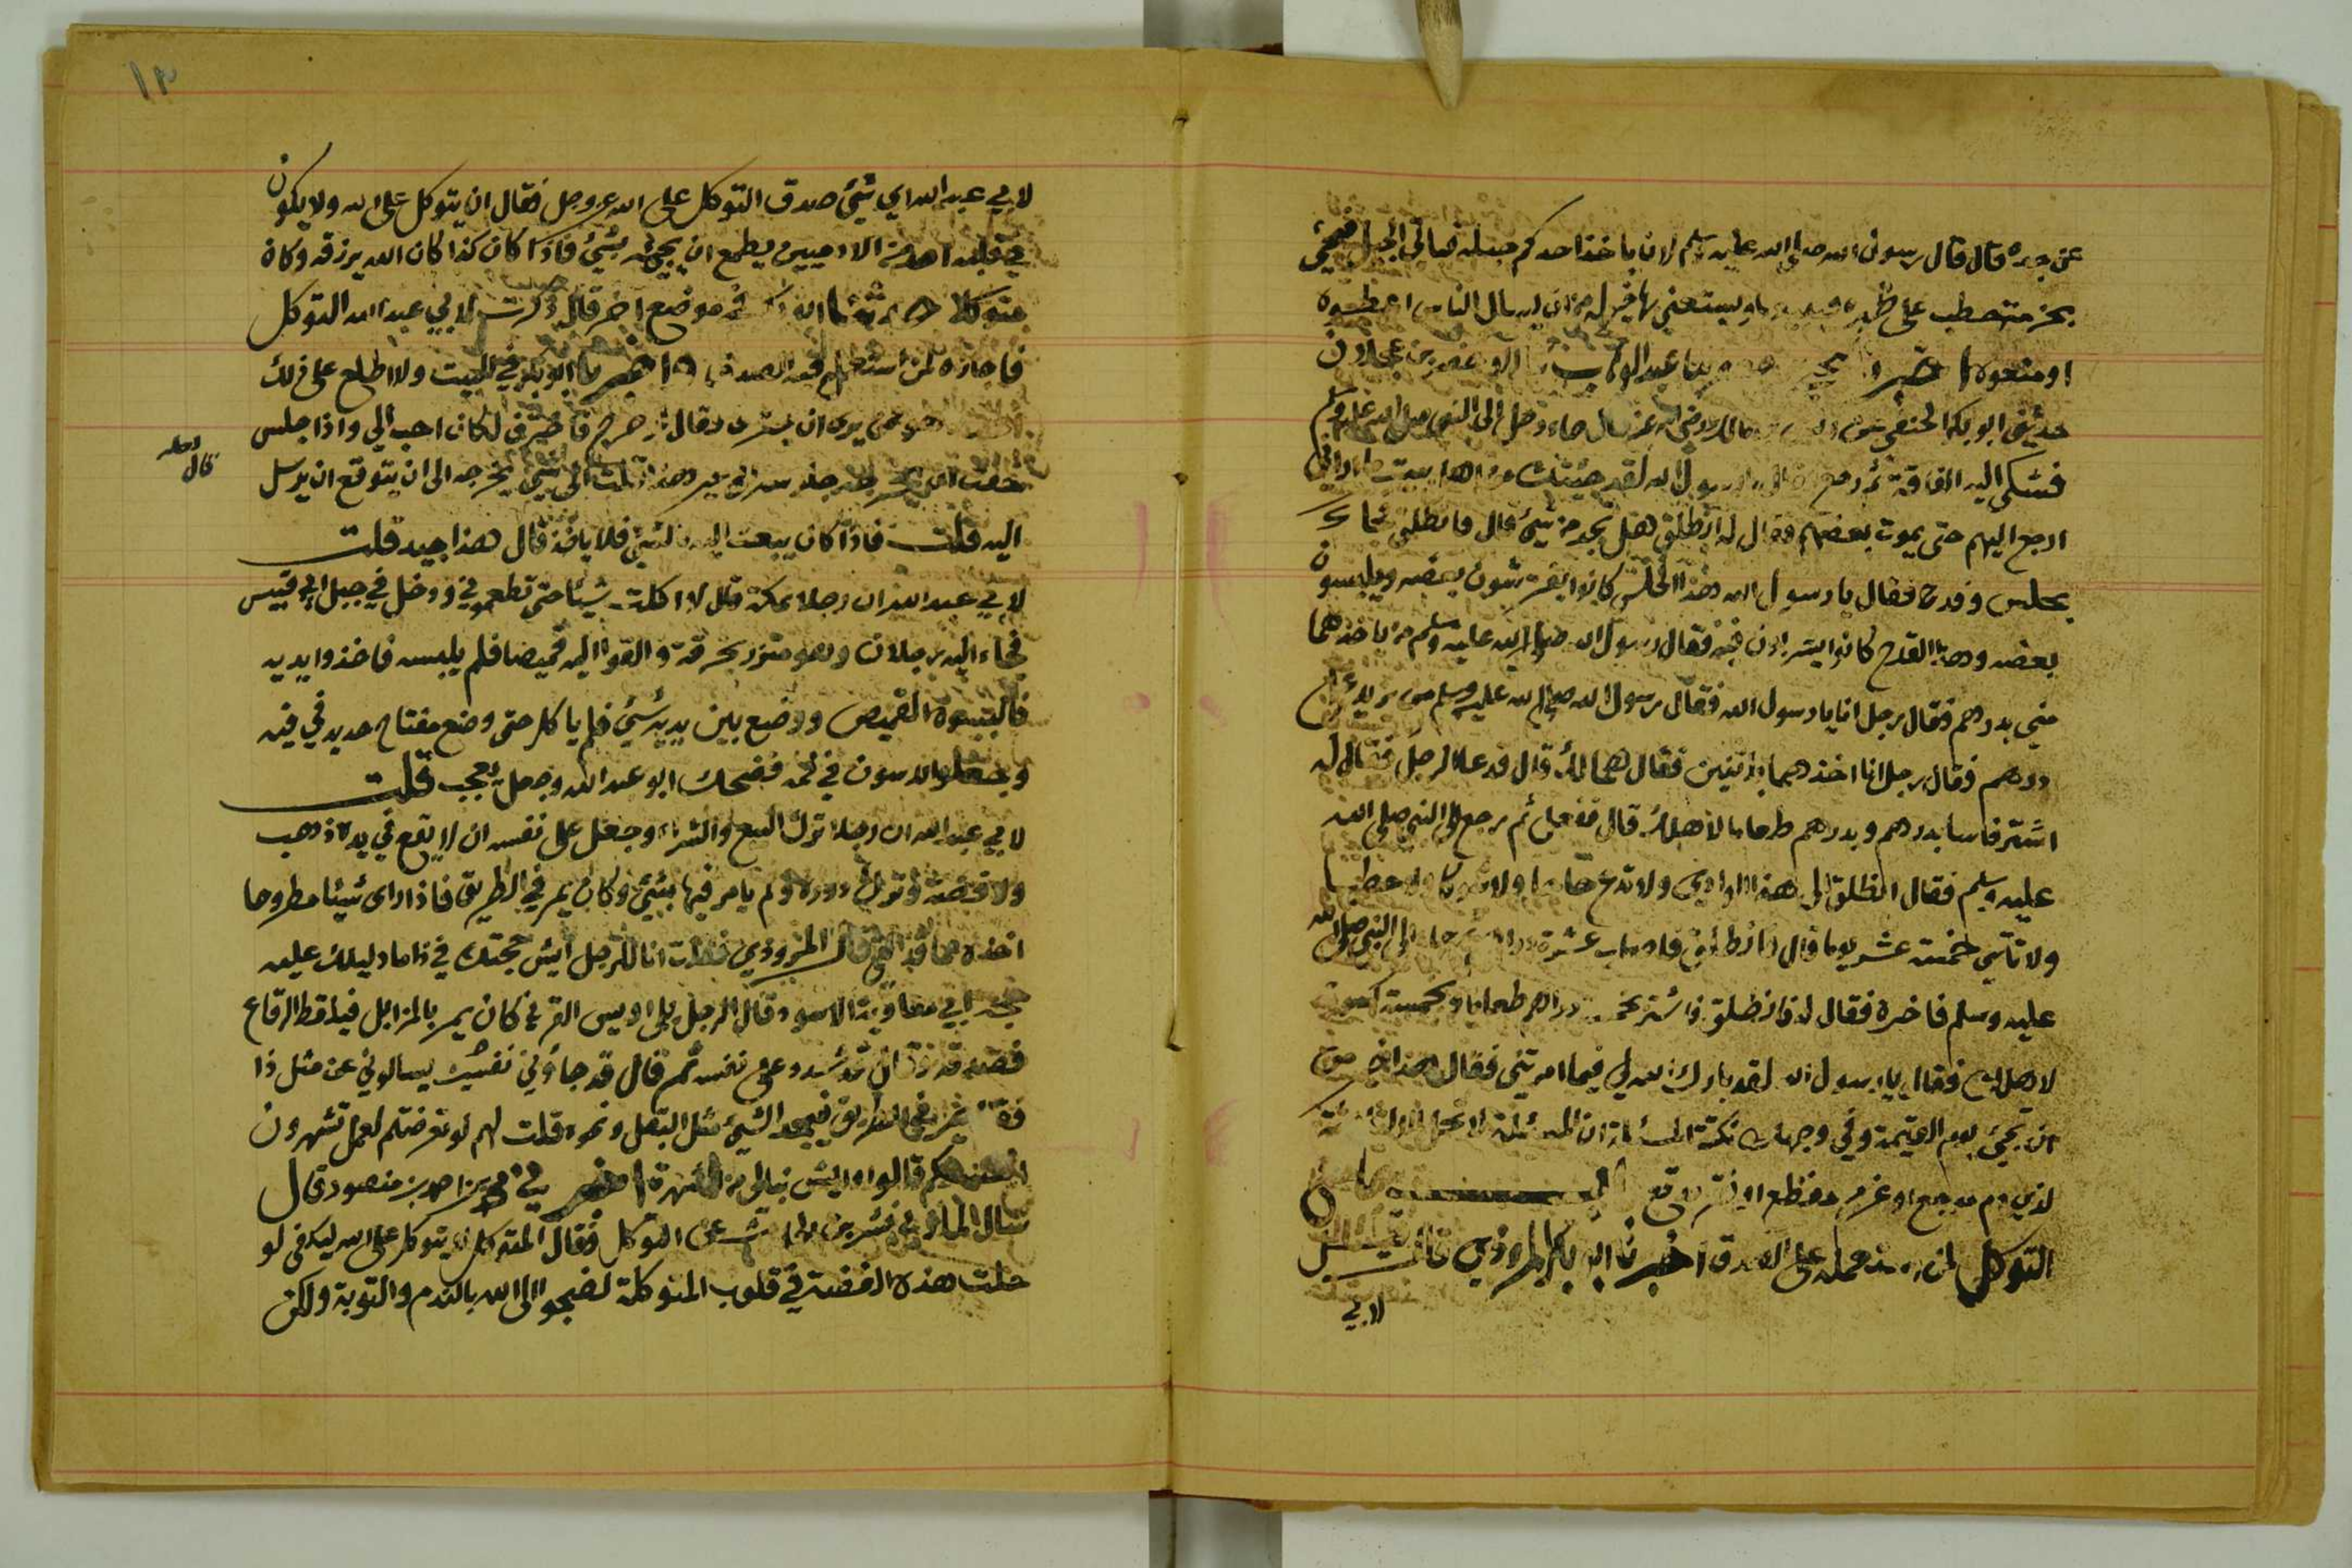 عن جده قال قال رسول الله صلى الله عليه وسلم لان ياخذ احدكم حبله فياتي الجبل فيجئ
بحزمة حطب على ظهره فيبيعها ويستغني بها خير له من ان يسال الناس اعطوه
او منعوه اخبرنا عبد الوهاب بن عجلان
حدثني ابو بكر الحنفي عن انس بن مالك رضي الله عنه قال جاء رجل الى النبي صلى الله عليه وسلم
فشكى اليه الفاقة ثم رجع فقال يا رسول الله لقد جئتك من اهل بيت ما اراني
ارجع اليهم حتى يموت بعضهم فقال له انطلق هل تجد من شيئ قال فانطلق فجاء
بحلس وقدح فقال يا رسول الله هذا الحلس كانوا يفترشون بعضه ويلبسون
بعضه وهذا القدح كانوا يشربون فيه فقال رسول الله صلى الله عليه وسلم من ياخذهما
مني بدرهم فقال رجل انا يا رسول الله فقال رسول الله صلى الله عليه وسلم من يزيد على
درهم فقال رجل انا اخذهما باثنين فقال هما لك قال فدعا الرجل فقال له
اشتر فاسا بدرهم وبدرهم طعاما لاهلك قال ففعل ثم رجع الى النبي صلى الله
عليه وسلم فقال انطلق الى هذا الوادي ولا تدع حاجا ولا شوكا ولا حطبا
ولا تاتني خمسة عشر يوما قال فانطلق فاصاب عشرة دراهم ثم جاء الى النبي صلى الله
عليه وسلم فاخبره فقال له فانطلق فاشتر بخمسة دراهم طعاما وبخمسة كسوة
لاهلك فقال يا رسول الله لقد بارك الله لي فيما امرتني فقال هذا خير من
ان تجيئ يوم القيمة وفي وجهك نكتة المسئلة ان المسئلة لا تحل الا لثلاثة
لذي دم موجع او غرم مفظع او فقر مدقع
التوكل لمن عمله على الصدق اخبرنا ابو بكر المروذي قال قيل
لابي
١٣
لابي عبد الله اي شيئ صدق التوكل على الله عز وجل فقال ان يتوكل على الله ولا يكون
في قلبه احد من الادميين يطمع ان يجيئه بشيئ فاذا كان كذا كان الله يرزقه وكان
متوكلا حدثنا في موضع اخر قال ذكرت لابي عبد الله التوكل
فاجازه لمن استعمل فيه الصدق اخبرنا ابو بكر في البيت ولا اطلع على ذلك
لكان احب الي واذا جلس
الى شيئ يخرجه الى ان يتوقع ان يرسل
اليه قلت فاذا كان يبعث اليه بالشيئ فلا ياخذ قال هذا جيد قلت
لابي عبد الله ان رجلا بمكة قال لا اكلت شيئا حتى تطعموني ودخل في جبل ابي قبيس
فجاء اليه رجلان وهو متزر بخرقة والقوا اليه قميصا فلم يلبسه فاخذوا بيديه
فالبسوه القميص ووضع بين يديه شيئ فلم ياكل حتى وضع مفتاح حديد في فيه
وجعلوا يدسون في فمه فضحك ابو عبد الله وجعل يعجب قلت
لابي عبد الله ان رجلا ترك البيع والشراء وجعل على نفسه ان لا يقع في يده ذهب
ولا فضة وترك دوره ولم يامر فيها بشيئ وكان يمر في الطريق فاذا راى شيئا مطروحا
اخذه مما قد القي قال المروذي فقلت انا للرجل ايش حجتك في ذا ما دليلك عليه
غير ابي معاوية الاسود قال الرجل بلى اويس القرني كان يمر بالمزابل فيلقط الرقاع
فصدقه وقال قد شدد على نفسه ثم قال قد جاؤني يسالوني عن مثل ذا
في الطريق فيجد الشيئ مثل البقل ونحوه قلت لهم لو تعرضتم لعمل تشهرون
انفسكم قالوا وايش نبالي من الشهرة اخبرني محمد بن احمد بن منصور قال
سال المازني بشر بن الحارث عن التوكل فقال المتوكل لا يتوكل على الله ليكفى لو
حلت هذه القصة في قلوب المتوكلة لضجوا الى الله بالندم والتوبة ولكن